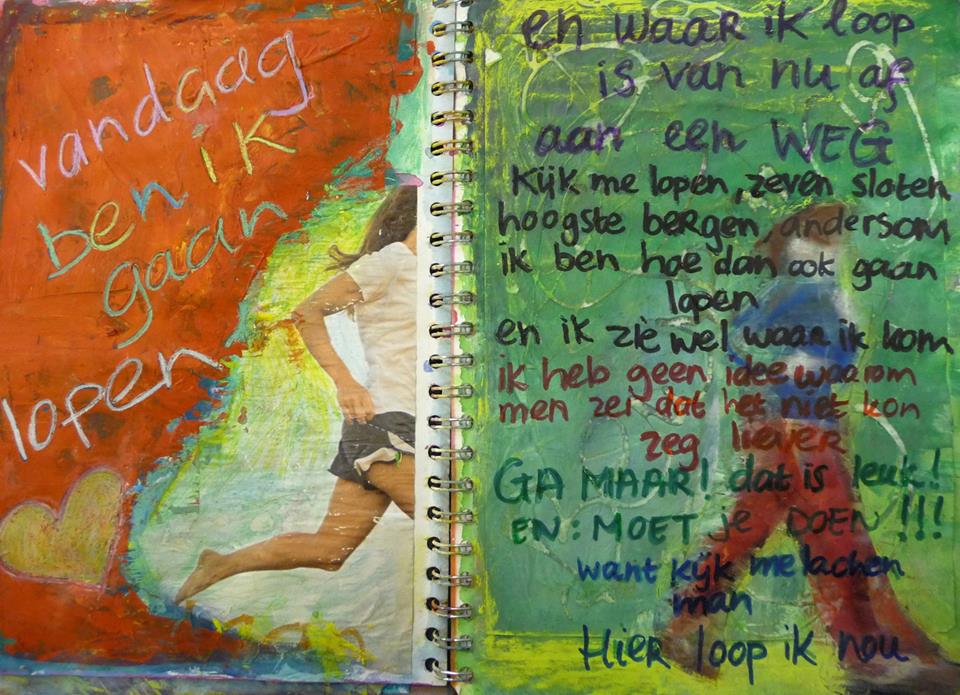 vandaag
ben ik
gaan
lopen
en waar ik loop
is van nu af
aan een WEG
Kijk me lopen, zeven sloten
hoogste bergen, andersom
ik ben hoe dan ook gaan
lopen
en ik zie wel waar ik kom
ik heb geen idee waarom
men zei dat het niet kon
zeg liever
GA MAAR! dat is leuk!
EN: MOET je DOEN!!!
want kijk me lachen
man
Hier loop ik nou